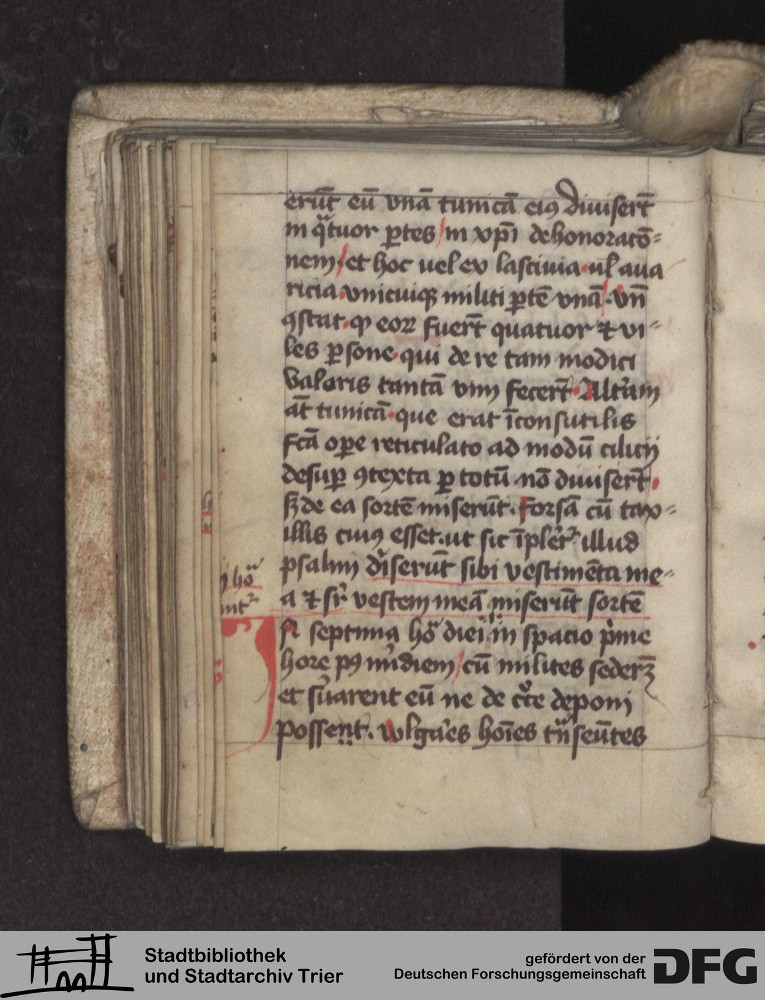 erūt eū vnā tunicā eiꝰ diuiserūt
in qͣtuor ꝑtes in xp̄i dehonoracō=
nem et hoc uel ex lasciuia ul̓ aua
ricia vnicuiqꝫ militi ꝑtē vnā vn̄
ꝯstat ꝙ eoꝝ fuerūt quatuor ⁊ vi=
les ꝑsone qui de re tam modici
valoris tantā vim fecerūt Altam
at̄ tunicā que erat īconsutilis
fcā oꝑe reticulato ad modū cilicij
desuꝑ ꝯtexta ꝑ totū nō diuiserūt
sꝫ de ea sortē miserūt forsā cū tax=
illis cuiꝰ esset ut sic īpleret̉ illud
psalmi diuiserūt sibi vestimēta me=
a ⁊ sr̄ vestem meā miserūt sortē
septima hōͣ diei in spacio p̓me
hore pꝰ m̓idiem cū milites sederēt
et s̓uarent eū ne de c͛ce deponi
possent wlgares hoīes tͣnseūtes
hōͣ
Stadtbibliothek
und Stadtarchiv Trier
gefördert von der
Deutschen Forschungsgemeinschaft
DFG